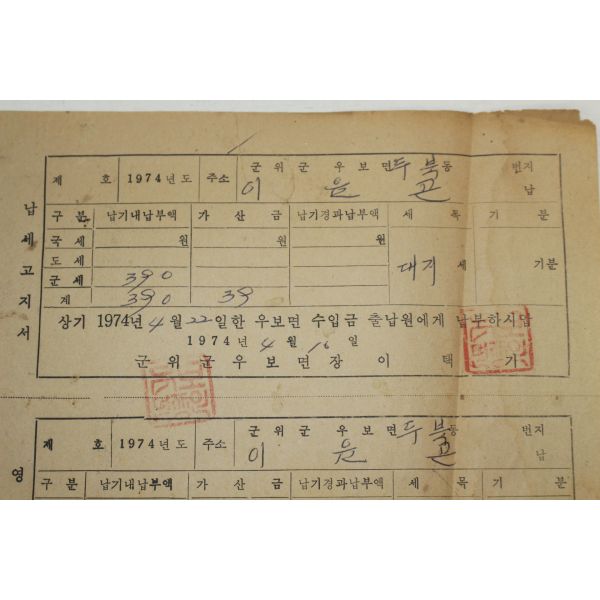 납세고지서
제 호 1974년도 주소 군위군 우보면 두북동 번지
이 윤 납
구분 납기내납부액 가산금 납기경과납부액 세목 기분
국세 원 원 원
도세
군세 390 대지세 기분
계 390 39
상기 1974년 4월 22일한 우보면 수입금 출납원에게 납부하시압
1974년 4월 16일
군위군우보면장 이택기
영
제 호 1974년도 주소 군위군 우보면 두북동 번지
이 윤 납
구분 납기내납부액 가산금 납기경과납부액 세목 기분